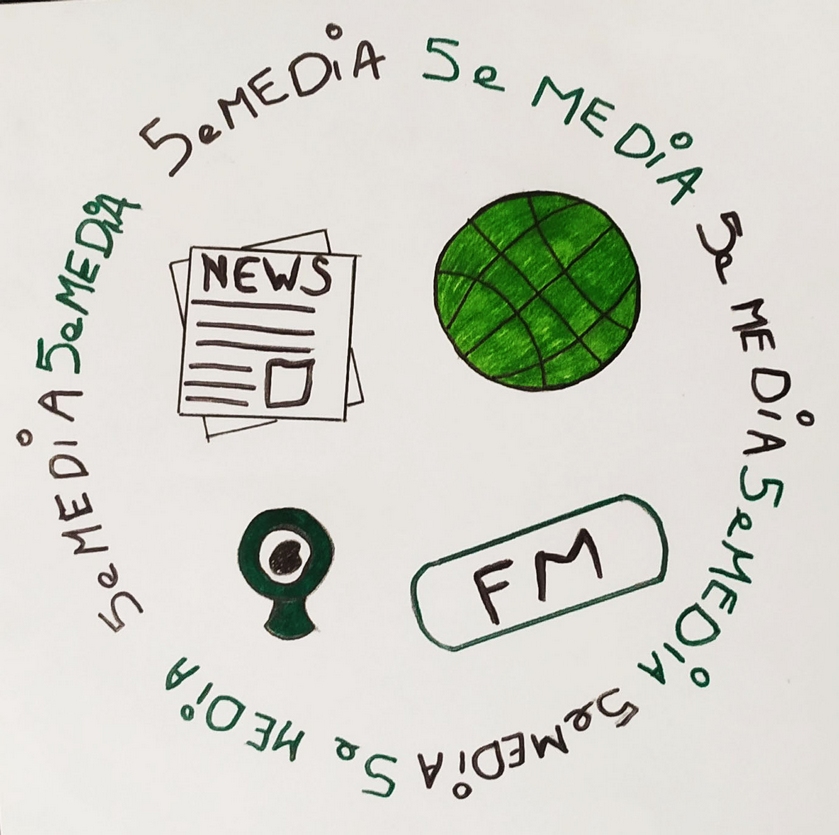 5eMEDiA
5e MEDiA
5e MEDiA
5eMEDiA
5eMEDiA
5e MEDiA
5eMEDiA
5eMEDiA
NEWS
FM